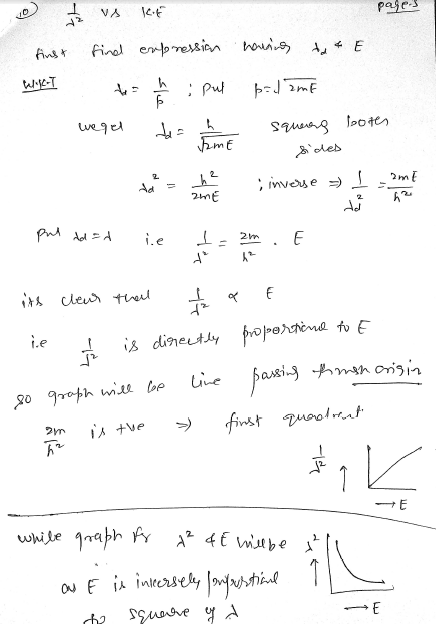 10) 1/λ² vs K.E page-5
first find expression having λd & E
W.K.T λd = h/p ; put p = √2mE
we get λd = h/√2mE squaring both sides
λd² = h²/2mE ; inverse ⇒ 1/λd² = 2mE/h²
put λd = λ i.e 1/λ² = 2m/h² . E
its clear that 1/λ² α E
i.e 1/λ² is directly proportional to E
so graph will be line passing through origin
2m/h² is +ve ⇒ first quadrant
1/λ² ↑
→ E
while graph for λ² & E will be λ² ↑
as E is inversely proportional
to square of λ → E